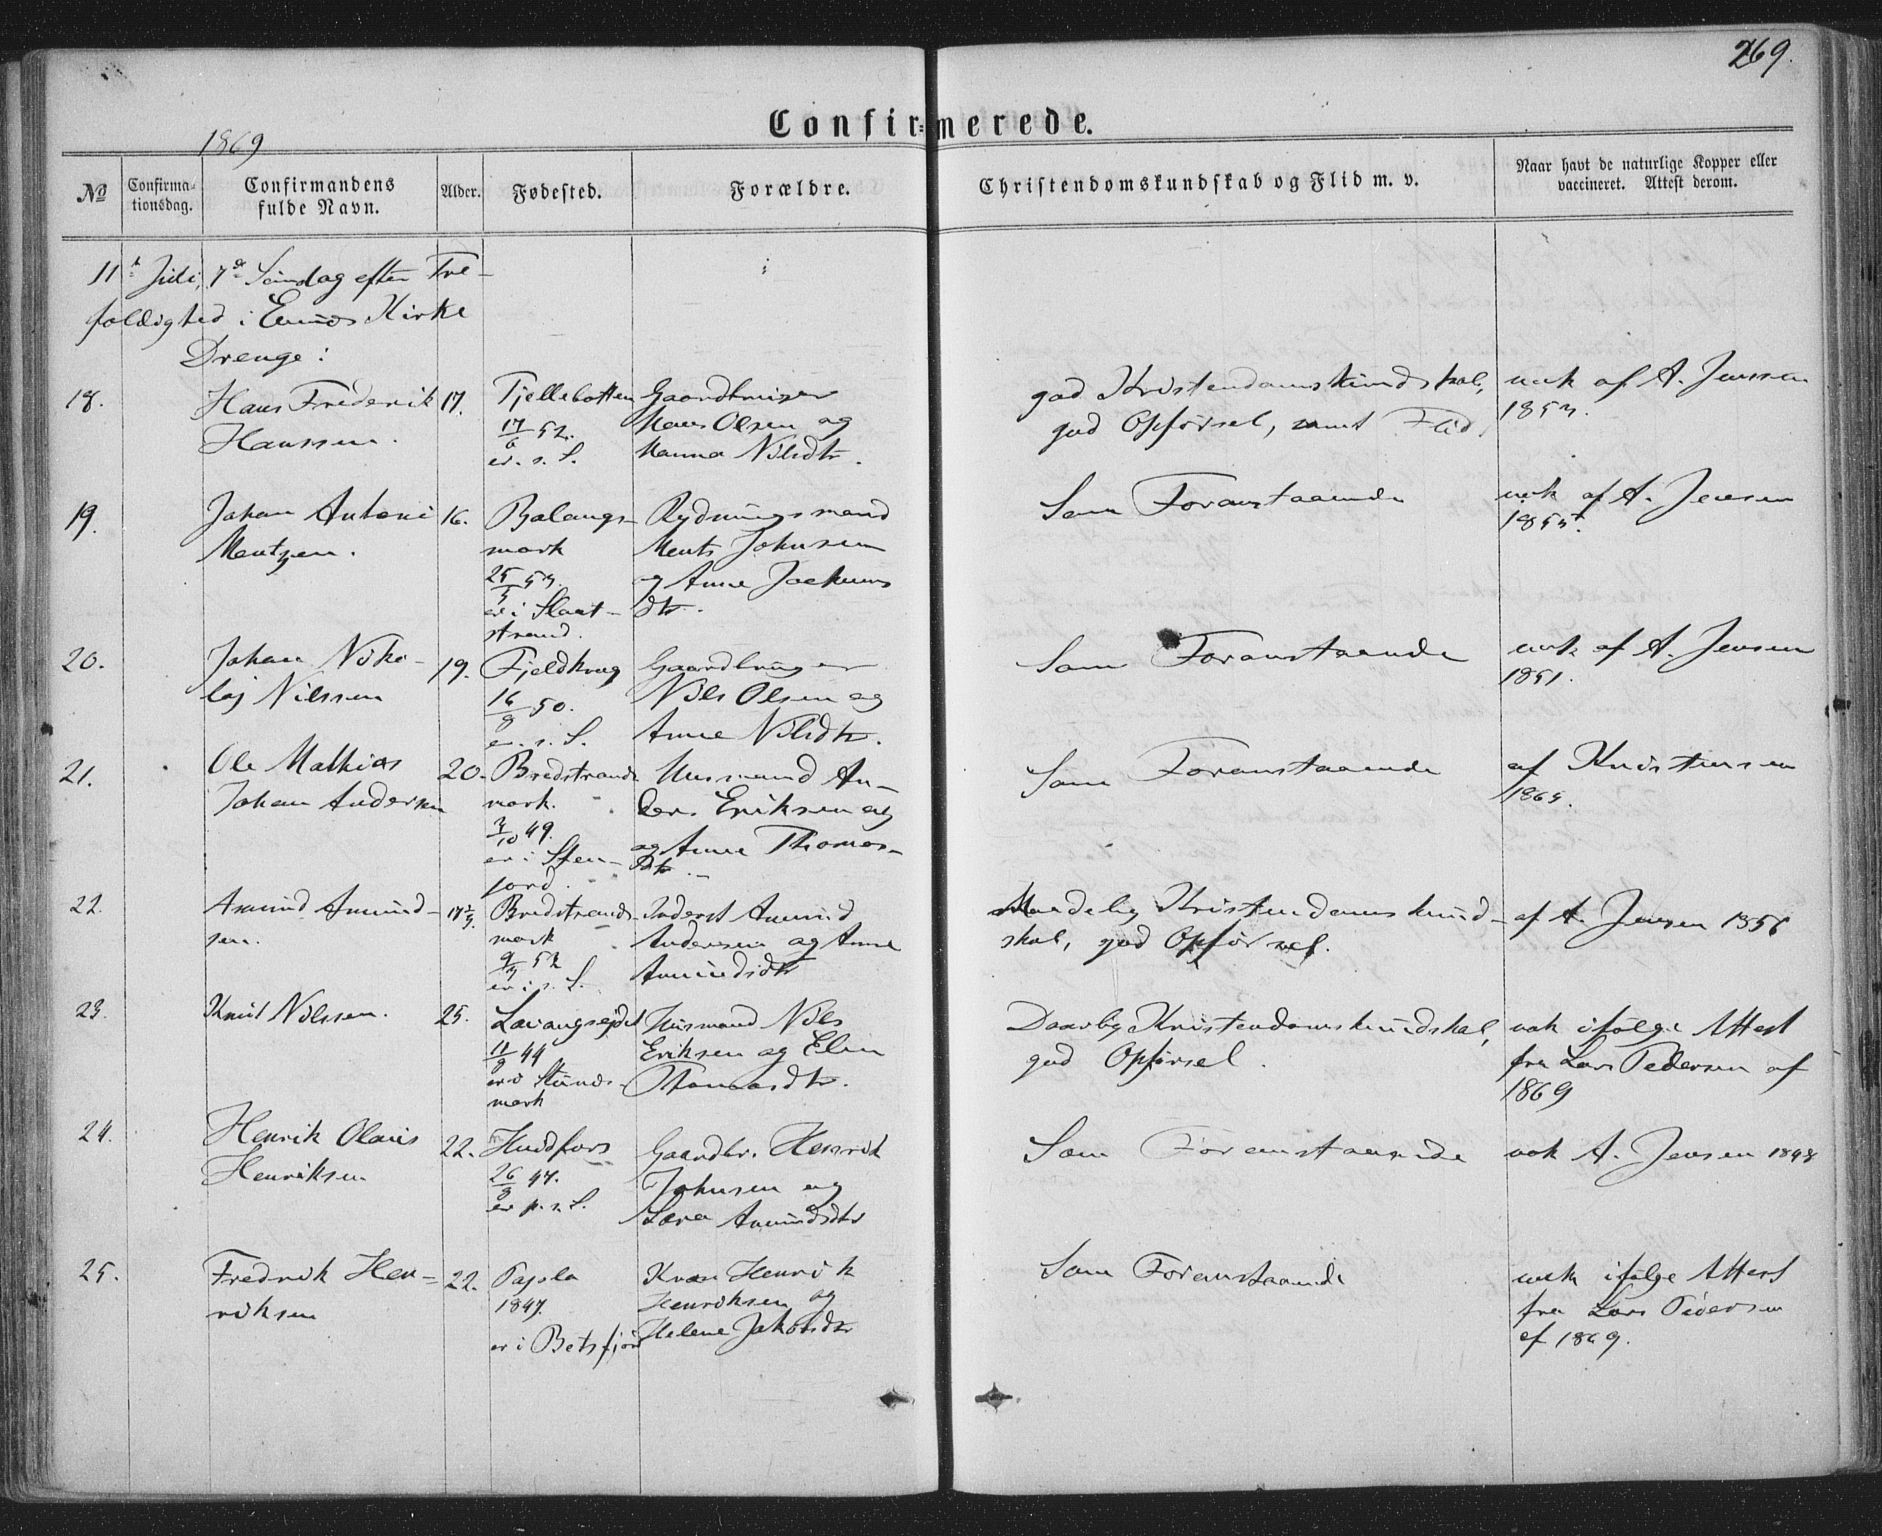 269.
Confirmerede.
1869
No
Confirma-
tionsdag.
Confirmandens
fulde Navn.
Alder.
Fødested.
Forældre.
Christendomskundskab og Flid m. v.
Naar havt de naturlige Kopper eller
vaccineret. Attest derom.
11te Juli, 7de Søndag efter Tre-
foldighed i Kirke
Drenge:
18.
Hans Frederik
Hanssen.
17.
Tjellebotten
17/6 52.
er. s. S.
Gaardbruger
Hans Olsen og
Hanna Nilsdtr.
god Kristendomskundskab,
god Opførsel, samt Flid
vak af A. Jenssen
1853.
19.
Johan Antoni
Mentzen.
16.
Balangs-
mark
25/5 53.
er i Slaat-
strand.
Rydningsmand
Ments Johnsen
og Anne Jochums
dtr.
Som Foranstaaende
vak af A. Jensen
20.
Johan Niko-
laj Nilssen
19.
Fjeldkrog
16/8 50.
er. s. S.
Gaardbruger
Nils Olsen og
Anne Nilsdtr.
Som Foranstaaende
vak af A. Jensen
1851.
21.
Ole Mathias
Johan Andersen
20.
Bredstrands
mark.
49.
er i Sten-
jord.
Husmand An-
ders Eriksen og
og Anne Thomas-
dtr.
Som Foranstaaende
af Kristensen
22.
Asmund Amund-
sen.
Bredstrands-
mark
9/3 52
er i s. S.
Inderst Amund
Andersen og Anne
Amundsdtr
Maadelig Kristendomskund-
skab, god Opførsel.
af A. Jensen 1856
23.
Knut Nilssen.
25.
Lavangsejdet
11/9 44
er i
mark
Husmand Nils
Eriksen og Elen
Daarlig Kristendomskundskab,
god Opførsel.
vak ifølge Attest
fra Lars Pedersen af
1869
24.
Henrik Olaus
Henriksen
22.
26/8 47.
er p. s. S.
Gaardbr. Henrik
Johnsen og
Lava Amundsdtr
Som Foranstaaende
vak A. Jensen 1848
25.
Fredrik Hen-
riksen
22.
Pajola
1847.
er i Betsfjord
Kvæn Henrik
Henriksen og
Helene Jakobsdtr
Som Foranstaaende
vak ifølge Attest
fra Lars Pedersen
af 1869.